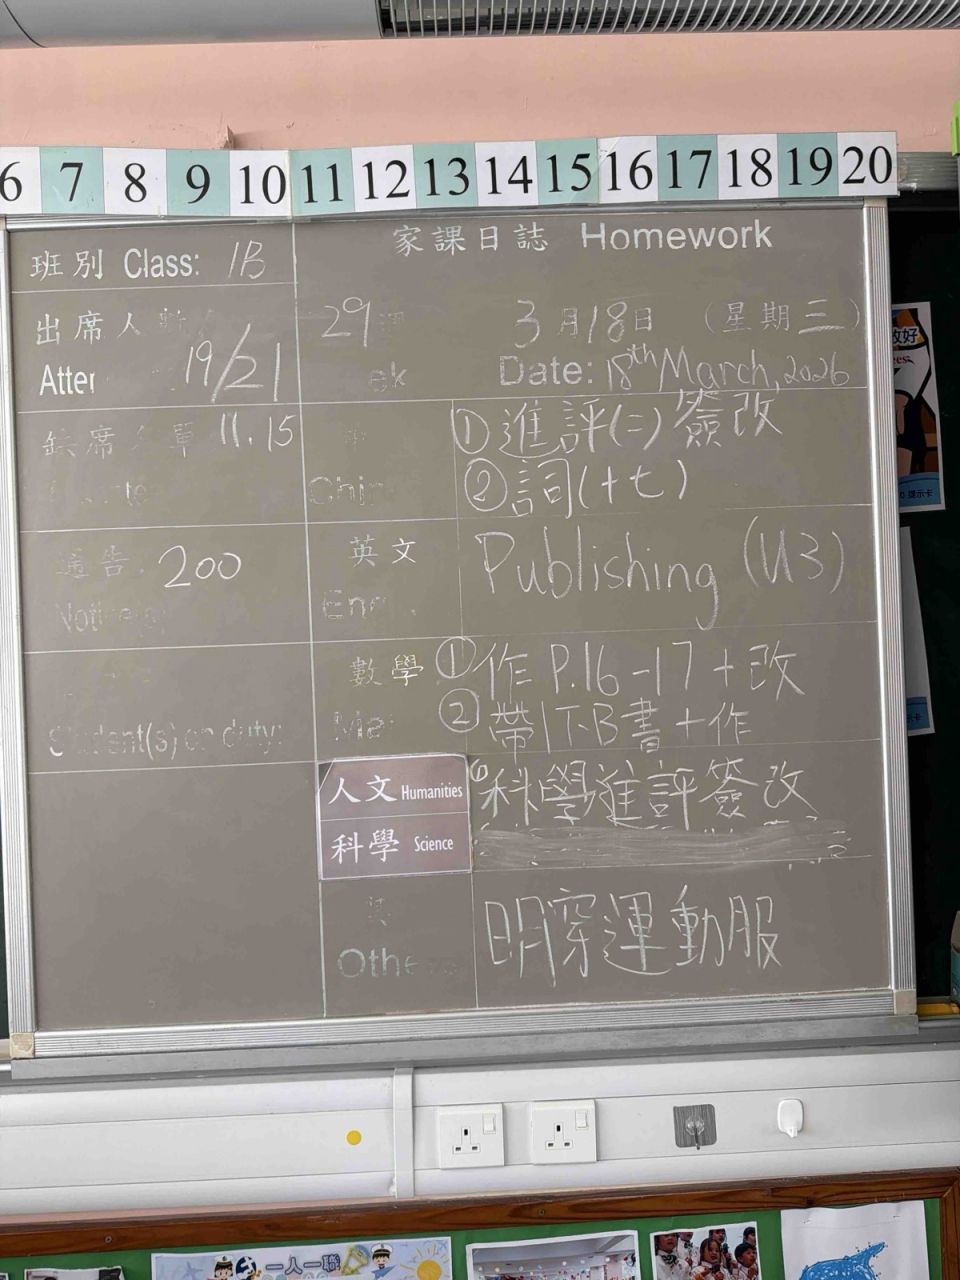 6 7 8 9 10 11 12 13 14 15 16 17 18 19 20
家課日誌 Homework
班別 Class: 1B
出席人數 19/21
29
3月18日 (星期三)
Date: 18th March, 2026
缺席名單 11. 15
①進評(二)簽改
②詞(十七)
通告: 200
英文
Publishing (U3)
數學
①作 P.16-17 + 改
②帶1下B書+作
Student(s) on duty:
人文 Humanities
科學 Science
科學進評簽改
Others
明穿運動服
一人一職